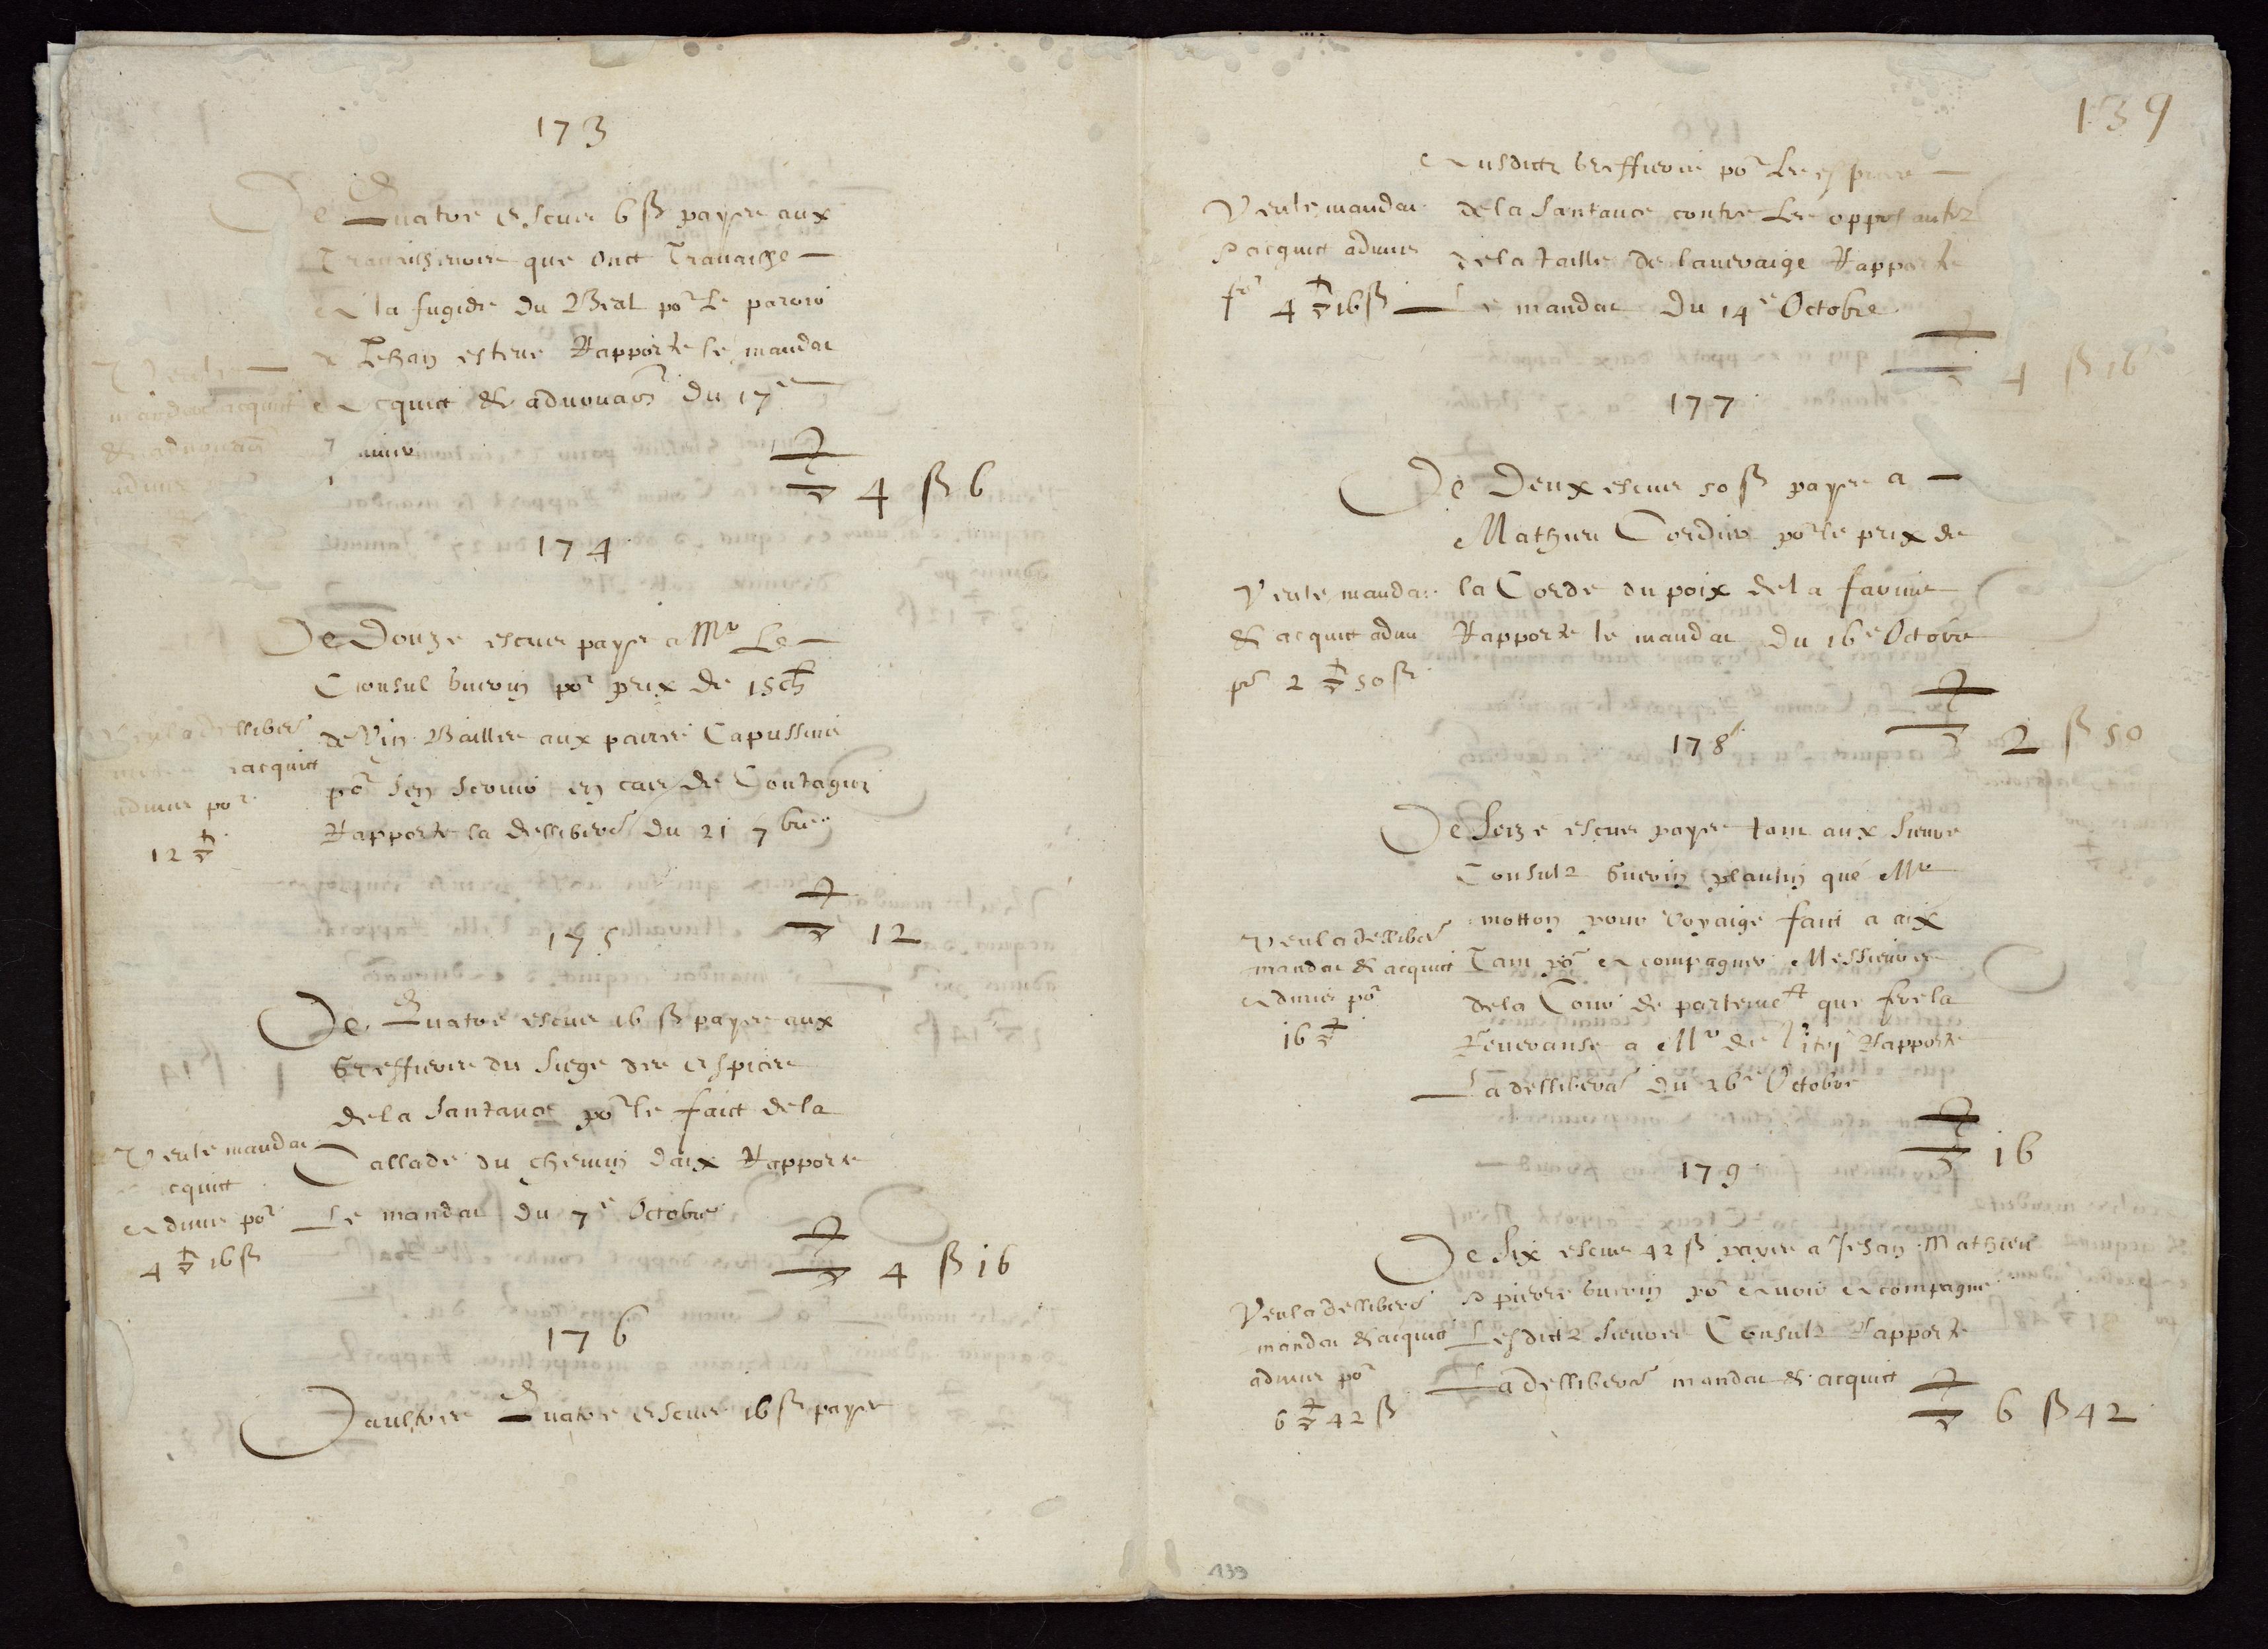 173
De Quatre escus 6 ß payes aux
Travailheurs que onct Travaihe
A la fugide du Beal por le
A Jehan esteve Rapporte le mandat
Acquict & advouaon du 17e
Veu le
mandat acquict
& advouaon
admis
4 ß 6
174
De Douze escus paye a Mr Le
Consul Guerin por prix de 15 ch
de Vin Baillee aux paires Capussins
por sen servir en cas de Contagion
Rapporte la dellibere du 21 7bre
Veu la dellibere
acquict
admis por
12
12
175
De Quatre escus 16 ß payes aux
Greffiers du Siege des espices
de la Santance por le faict de la
Callade du chemin daix Rapporte
Le mandat du 7e Octobre
Veu le mandat
acquict
Admis por
4 16 ß
4 ß 16
176
Daultres Quatre escus 16 ß payes
139
Ausdictz Greffiers por Les espices
de la Santance contre Les opposantz
de la taille de laveraige Rapporte
Le mandat du 14e Octobre
Veu le mandat
acquict admis
por 4 16 ß
4 ß 16
177
De Deux escus 50 ß payes a
Mathieu Cordier por le prix de
la Corde du poix de la farine
Rapporte le mandat du 16e Octobre
Veu le mandat
& acquict admis
por 2 50 ß
2 ß 50
178
De Seize escus payes tant aux Sieurs
Consulz Guerin plantin que Mr
motton pour voyaige faict a aix
Tant por Acompagner Messieurs
de la Cour de parlemet que fre la
Reverance a Mr de Rapporte
La dellibera du 26e Octobre
Veu la dellibere
mandat & acquict
Admis por
16
16
179
De Six escus 42 ß payes a Jehan Mathieu
pierre Guerin por Avoir Acompagne
Lesdictz Sieurs Consulz Rapporte
La dellibera mandat & acquict
Veu la dellibere
mandat & acquict
admis por
6 42 ß
6 ß 42
139